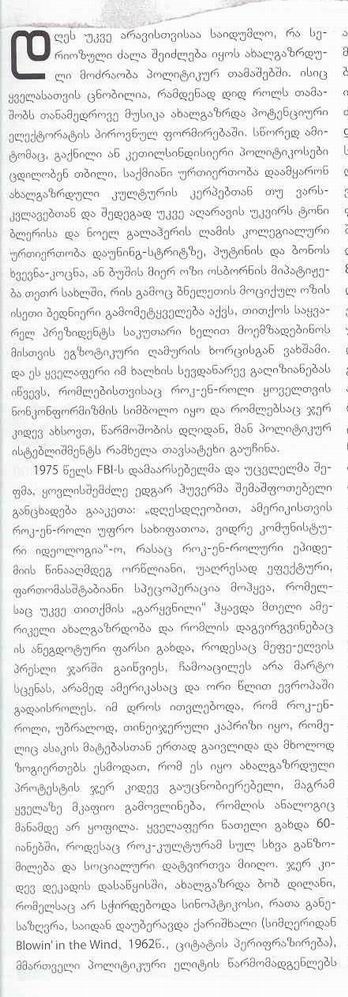 დღეს უკვე არავისთვისაა საიდუმლო, რა სე-
რიოზული ძალა შეიძლება იყოს ახალგაზრდუ-
ლი მოძრაობა პოლიტიკურ თამაშებში. ისიც
ყველასათვის ცნობილია, რამდენად დიდ როლს თამა-
შობს თანამედროვე მუსიკა ახალგაზრდა პოტენციური
ელექტორატის პიროვნულ ფორმირებაში. სწორედ ამი-
ტომაც, გაქნილი ან კეთილსინდისიერი პოლიტიკოსები
ცდილობენ თბილი, საქმიანი ურთიერთობა დაამყარონ
ახალგაზრდული კულტურის კერპებთან თუ ვარს-
კვლავებთან და შედეგად უკვე აღარავის უკვირს ტონი
ბლერისა და ნოელ გალაჰერის ლამის კოლეგიალური
ურთიერთობა დაუნინგ-სტრიტზე, პუტინის და ბონოს
ხვევნა-კოცნა, ან ბუშის მიერ ოზი ოსბორნის მიპატიჟე-
ბა თეთრ სახლში, რის გამოც ბნელეთის მოციქულ ოზის
ისეთი ბედნიერი გამომეტყველება აქვს, თითქოს საყვა-
რელ პრეზიდენტს საკუთარი ხელით მოემზადებინოს
მისთვის ეგზოტიკური ღამურის ხორცისგან ვახშამი.
და ეს ყველაფერი იმ ხალხის სევდანარევ გაღიზიანებას
იწვევს, რომლებისთვისაც როკ-ენ-როლი ყოველთვის
ნონკონფორმიზმის სიმბოლო იყო და რომლებსაც ჯერ
კიდევ ახსოვთ, წარმოშობის დღიდან, მან პოლიტიკურ
ისტებლიშმენტს რამხელა თავსატეხი გაუჩინა.
1975 წელს FBI-ს დამაარსებელმა და უცვლელმა შე-
ფმა, ყოვლისშემძლე ედგარ ჰუვერმა შემაშფოთებელი
განცხადება გააკეთა: „დღესდღეობით, ამერიკისთვის
როკ-ენ-როლი უფრო სახიფათოა, ვიდრე კომუნისტუ-
რი იდეოლოგია“-ო, რასაც როკ-ენ-როლური ეპიდე-
მიის წინააღმდეგ ორწლიანი, უაღრესად ეფექტური,
ფართომასშტაბიანი სპეცოპერაცია მოჰყვა, რომელ-
საც უკვე თითქმის „გარყვნილი“ ჰყავდა მთელი ამე-
რიკელი ახალგაზრდობა და რომლის დაგვირგვინებაც
ის ანეგდოტური ფარსი გახდა, როდესაც მეფე-ელვის
პრესლი ჯარში გაიწვიეს, ჩამოაცილეს არა მარტო
სცენას, არამედ ამერიკასაც და ორი წლით ევროპაში
გადაისროლეს. იმ დროს ითვლებოდა, რომ როკ-ენ-
როლი, უბრალოდ, თინეიჯერული კაპრიზი იყო, რომე-
ლიც ასაკის მატებასთან ერთად გაივლიდა და მხოლოდ
ზოგიერთებს ესმოდათ, რომ ეს იყო ახალგაზრდული
პროტესტის ჯერ კიდევ გაუცნობიერებელი, მაგრამ
ყველაზე მკაფიო გამოვლინება, რომლის ანალოგიც
მანამდე არ ყოფილა. ყველაფერი ნათელი გახდა 60-
იანებში, როდესაც როკ-კულტურამ სულ სხვა განზო-
მილება და სოციალური დატვირთვა მიიღო. ჯერ კი-
დევ დეკადის დასაწყისში, ახალგაზრდა ბობ დილანი,
რომელსაც არ სჭირდებოდა სინოპტიკოსი, რათა განე-
საზღვრა, საიდან დაუბერავდა ქარიშხალი (სიმღერიდან
Blowin' in the Wind, 1962წ., ციტატის პერიფრაზირება),
მმართველი პოლიტიკური ელიტის წარმომადგენლებს